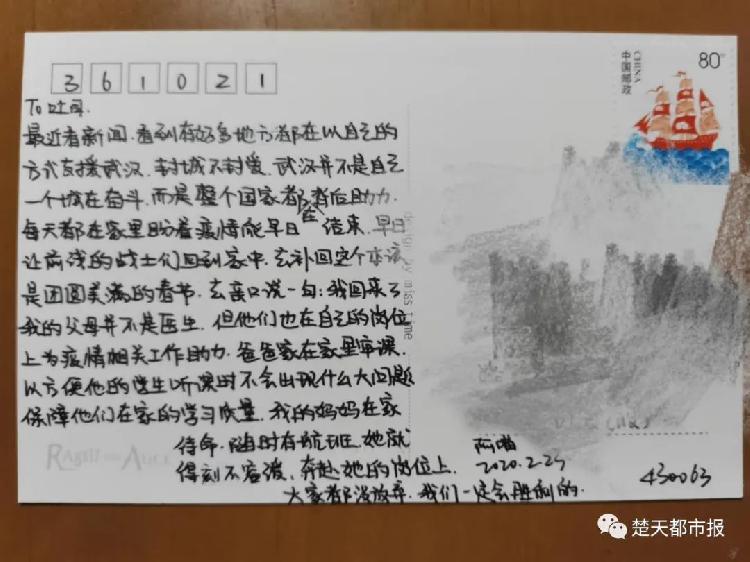 361021
80分
中国邮政
CHINA
To 吐司.
最近看新闻.看到有好多地方都在以自己的
方式支援武汉.封城不封爱.武汉并不是自己
一个城在奋斗.而是整个国家都在背后助力.
每天都在家里盼着疫情能早日结束.早日
让前线的战士们回到家中.去补回这个本该
是团圆美满的春节.去亲口说一句:我回来了
我的父母并不是医生.但他们也在自己的岗位
上为疫情相关工作助力.爸爸家在家里审课.
以方便他的学生听课时不会出现什么大问题
保障他们在家的学习质量.我的妈妈在家
待命.随时有航班.她就
得刻不容缓.奔赴她的岗位上.
大家都没放弃.我们一定会胜利的.
阿喵
2020.2.25
430063
miss time
RABBIT AND ALICE
楚天都市报